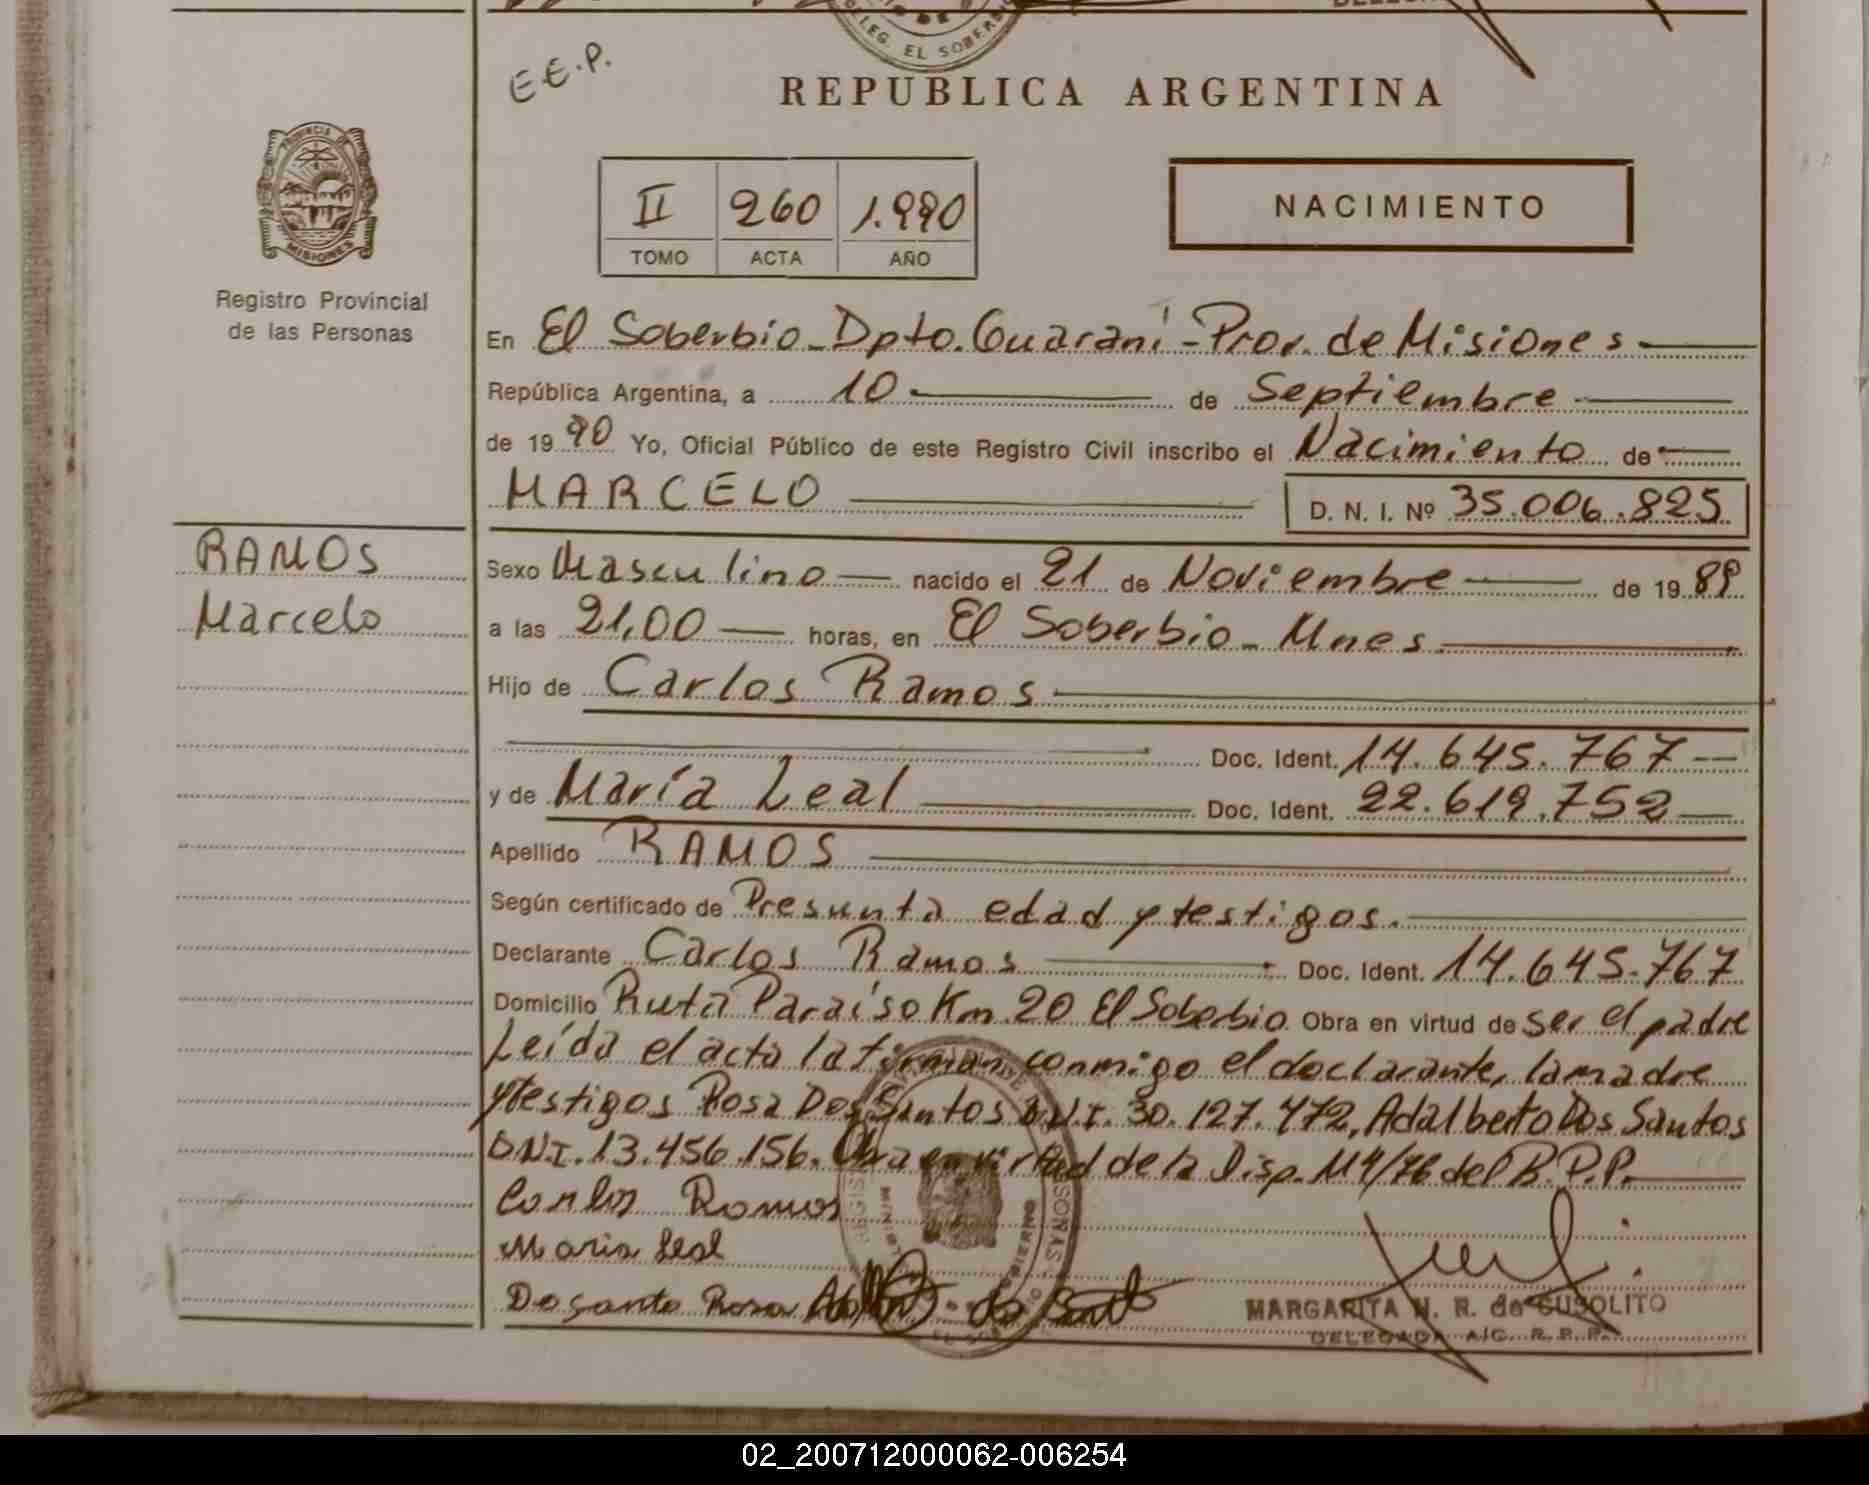 LEG. EL SOBERBIO
E.E.P.
REPUBLICA ARGENTINA
PROVINCIA DE
MISIONES
II 260 1.990
TOMO ACTA AÑO
NACIMIENTO
Registro Provincial
de las Personas
En El Soberbio - Dpto. Guaraní - Prov. de Misiones
República Argentina, a 10 de Septiembre
de 19 90 Yo, Oficial Público de este Registro Civil inscribo el Nacimiento de
MARCELO
D. N. I. Nº 35.006.825
RAMOS
Marcelo
Sexo Masculino nacido el 21 de Noviembre de 19 89
a las 21,00 horas, en El Soberbio - Mnes.
Hijo de Carlos Ramos
Doc. Ident. 14.645.767
y de María Leal Doc. Ident. 22.619.752
Apellido RAMOS
Según certificado de Presunta edad y testigos.
Declarante Carlos Ramos Doc. Ident. 14.645.767
Domicilio Ruta Paraíso Km 20 El Soberbio Obra en virtud de ser el padre
Leída el acta la firman conmigo el declarante, la madre
y testigos Rosa Dos Santos D.N.I. 30.127.472, Adalberto Dos Santos
DNI. 13.456.156. Obra en virtud de la Disp. 114/76 del R.P.P.
Carlos Ramos
Maria Leal
Do santo Rosa
MARGARITA N. R. de CUSOLITO
DELEGADA A/C. R.P.P.
02_200712000062-006254